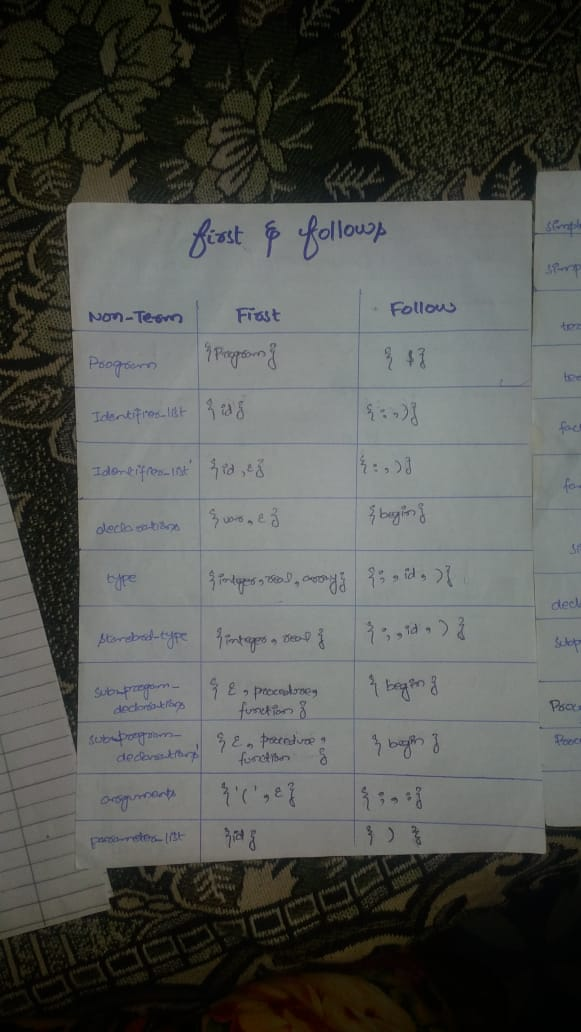 first & follows
Non-Term First Follow
Program {Program} { $}
Identifier_list {id} {:,)}
Identifier_list' {id,ε} {:,)}
declarations {var,ε} {begin}
type {integer,real,array} {;,id,)}
Standard-type {integer,real} {;,id,)}
subprogram_
declarations {ε,procedure,
function} {begin}
subprogram_
declarations' {ε,procedure,
function} {begin}
arguments {'(',ε} {;,:}
parameter_list {id} { ) }
simpl
simp
ter
ter
fact
fa
si
decl
subp
Proc
Proce